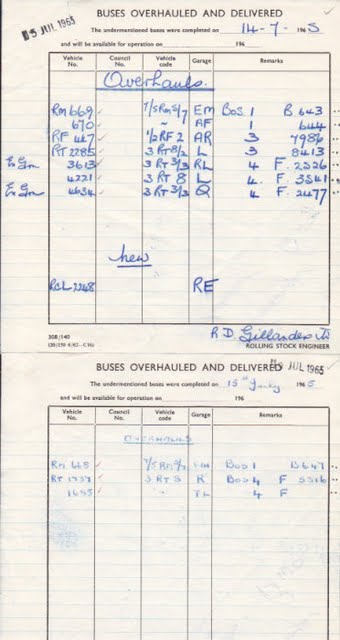 BUSES OVERHAULED AND DELIVERED
15 JUL 1965
The undermentioned buses were completed on 14-7- 1965
and will be available for operation on 196
Vehicle No. Council No. Vehicle code Garage Remarks
Overhauls.
RM 669 7/5 RM 5/7 EM BOS. 1 B. 643
670 " AF 1 644
RF 467 1/2 RF 2 AR 3 7986
RT 2285 3 RT 8/2 L 3 8413
Ex Gm 3613 3 RT 3/3 RL 4 F. 2326
4221 3 RT 8 L 4. F. 3541
Ex Gm 4634 3 RT 3/3 Q 4 F. 2477
New
RML 2248 RE
R.D. Gillanders
ROLLING STOCK ENGINEER
308/140
BUSES OVERHAULED AND DELIVERED
JUL 1965
The undermentioned buses were completed on 15th July 1965
and will be available for operation on 196
Vehicle No. Council No. Vehicle code Garage Remarks
OVERHAULS
RM 668 7/5 RM 5/7 BOS 1 B 647
RT 1737 3 RT 8 K BOS 4 F 5316
1695 " TL 4 F